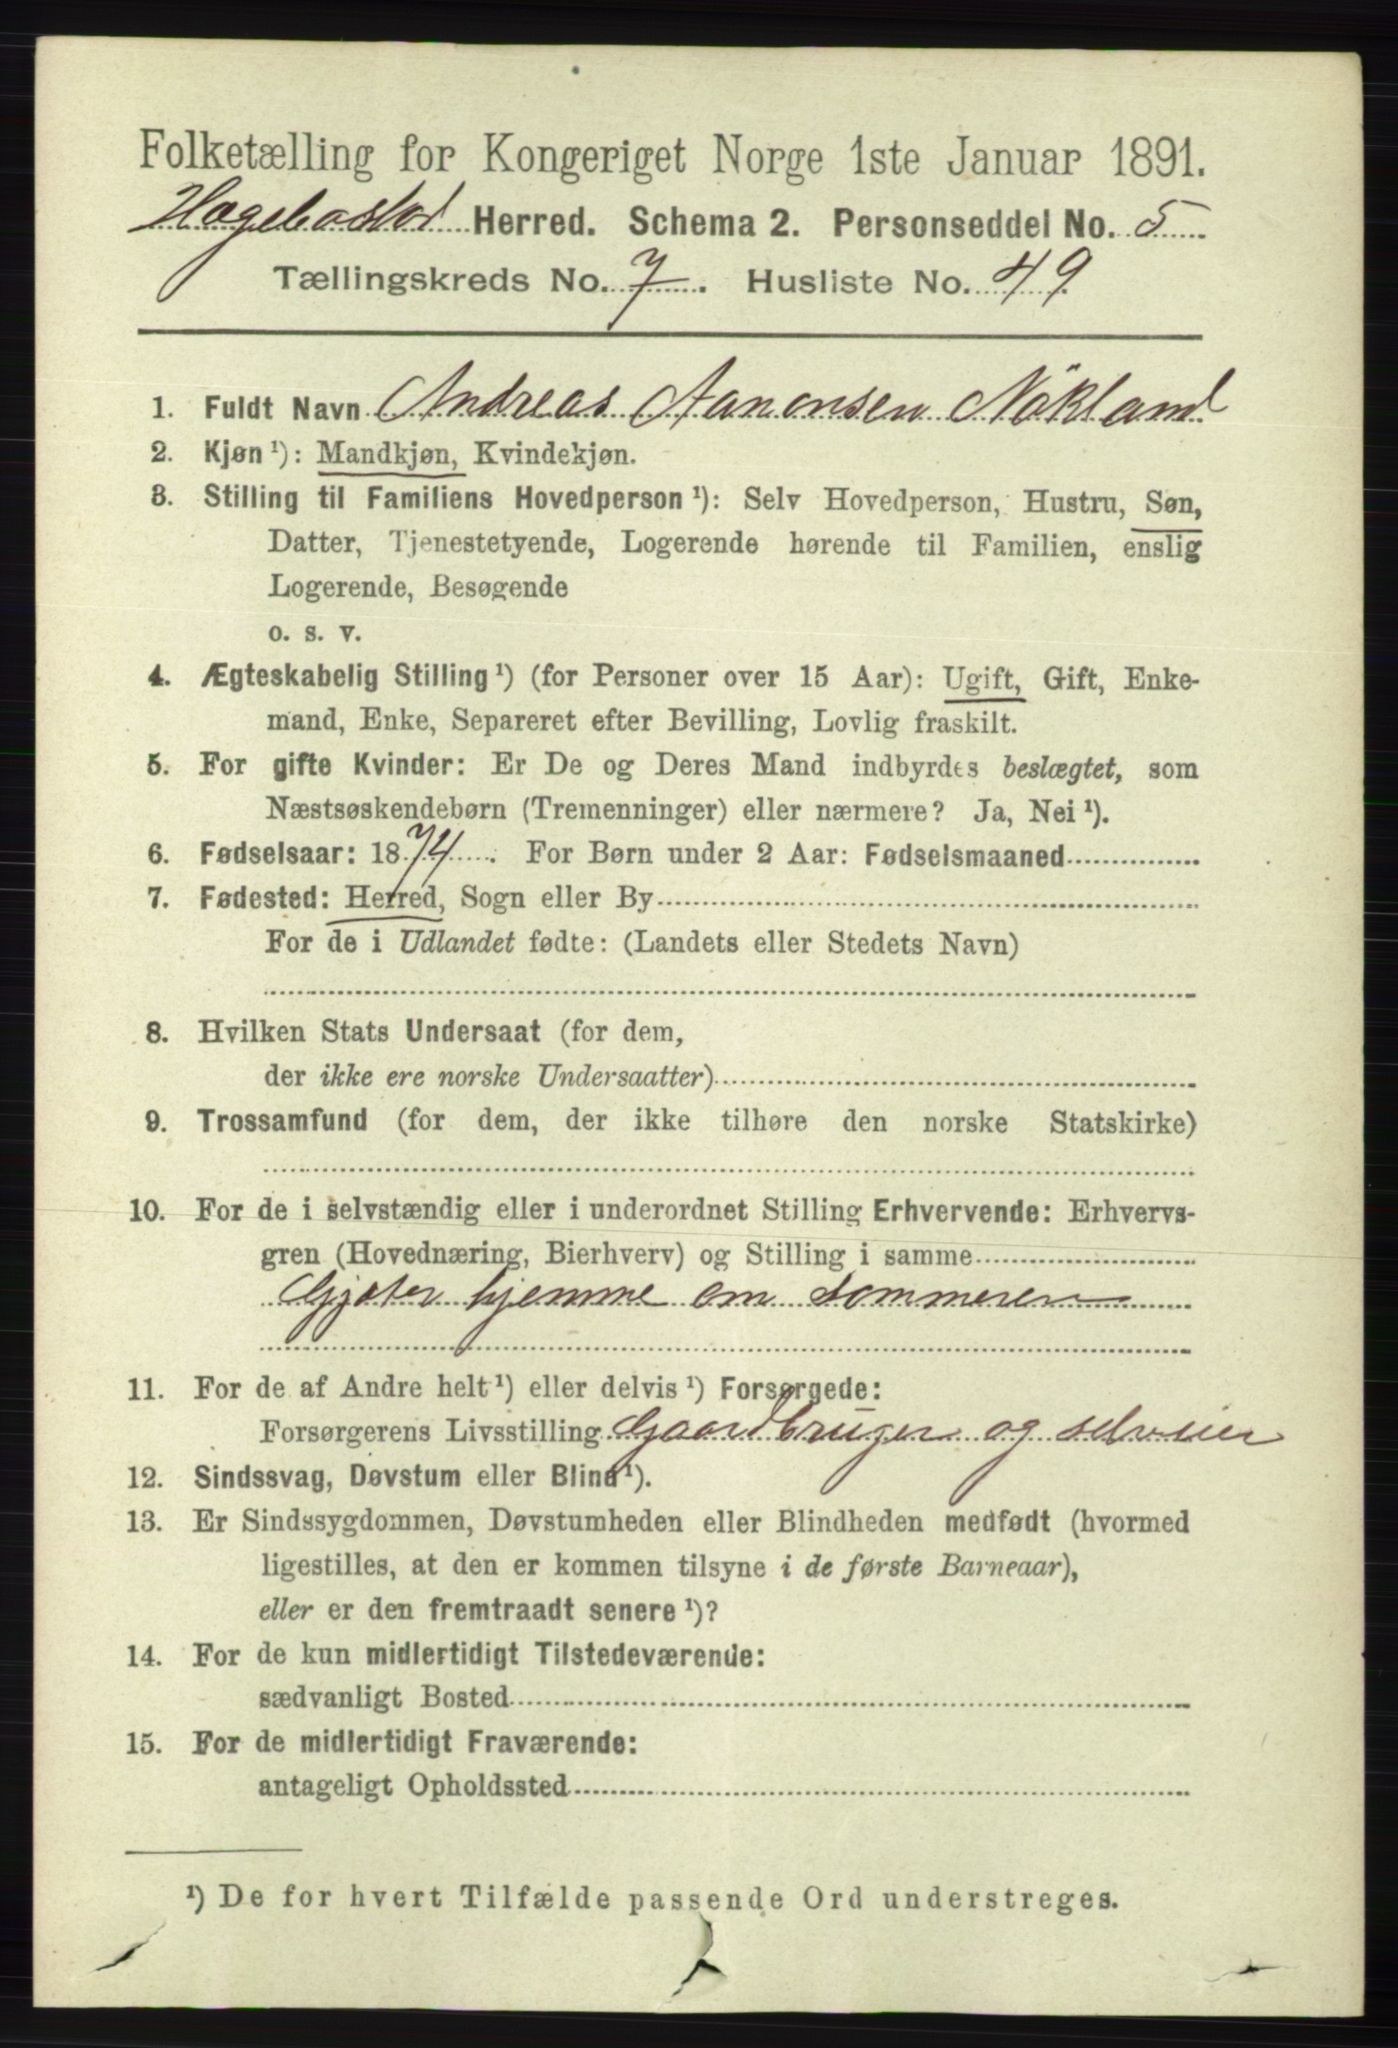 Folketælling for Kongeriget Norge 1ste Januar 1891.
Hægebostad Herred. Schema 2. Personseddel No. 5
Tællingskreds No. 7. Husliste No. 49
1. Fuldt Navn Andreas Aanonsen Nökland
2. Kjøn ¹): Mandkjøn, Kvindekjøn.
3. Stilling til Familiens Hovedperson ¹): Selv Hovedperson, Hustru, Søn,
Datter, Tjenestetyende, Logerende hørende til Familien, enslig
Logerende, Besøgende
o. s. v.
4. Ægteskabelig Stilling ¹) (for Personer over 15 Aar): Ugift, Gift, Enke-
mand, Enke, Separeret efter Bevilling, Lovlig fraskilt.
5. For gifte Kvinder: Er De og Deres Mand indbyrdes beslægtet, som
Næstsøskendebørn (Tremenninger) eller nærmere? Ja, Nei ¹).
6. Fødselsaar: 1874. For Børn under 2 Aar: Fødselsmaaned
7. Fødested: Herred, Sogn eller By
For de i Udlandet fødte: (Landets eller Stedets Navn)
8. Hvilken Stats Undersaat (for dem,
der ikke ere norske Undersaatter)
9. Trossamfund (for dem, der ikke tilhøre den norske Statskirke)
10. For de i selvstændig eller i underordnet Stilling Erhvervende: Erhvervs-
gren (Hovednæring, Bierhverv) og Stilling i samme
Gjæter hjemme om Sommeren
11. For de af Andre helt ¹) eller delvis ¹) Forsørgede:
Forsørgerens Livsstilling Gaardbruger og selveier
12. Sindssvag, Døvstum eller Blind ¹).
13. Er Sindssygdommen, Døvstumheden eller Blindheden medfødt (hvormed
ligestilles, at den er kommen tilsyne i de første Barneaar),
eller er den fremtraadt senere ¹)?
14. For de kun midlertidigt Tilstedeværende:
sædvanligt Bosted
15. For de midlertidigt Fraværende:
antageligt Opholdssted
¹) De for hvert Tilfælde passende Ord understreges.